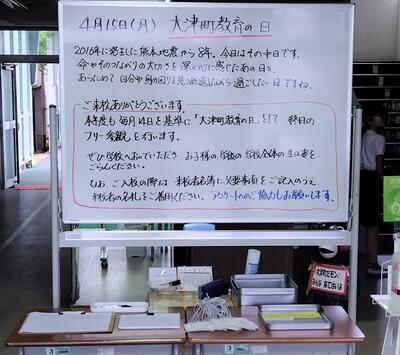 4月15日(月) 大津町教育の日
2016年に発生した熊本地震から8年。今日はその中日です。
命やそのつながりの大切さを深く心に感じたあの日を、
あらためて自分や身の回りを見つめ返しながら過ごしたい日ですね。
ご来校ありがとうございます。
本年度も毎月14日を基準に「大津町教育の日」として、終日の
フリー参観を行います。
ぜひ学校へおいでいただき、お子様の学級の学校全体の生の姿を
ごらんください。
なお、ご入校の際は来校者名簿に必要事項をご記入のうえ
来校者の名札をご着用ください。アンケートへのご協力もお願いします。
大津町だモン!
みんな 来てはいよ
3
3